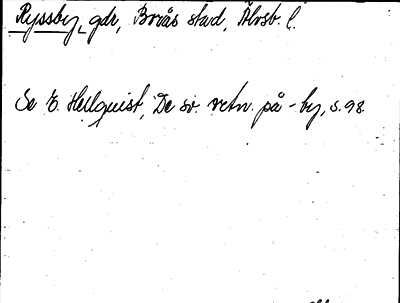 Ryssby, gdr, Borås stad, Älvsb. l.
Se E. Hellquist, De sv. ortn. på -by, s. 98